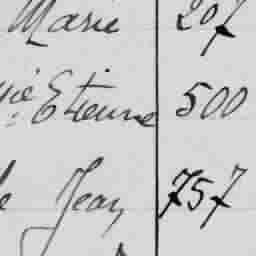 Marie 207
Etienne 500
Jean 757